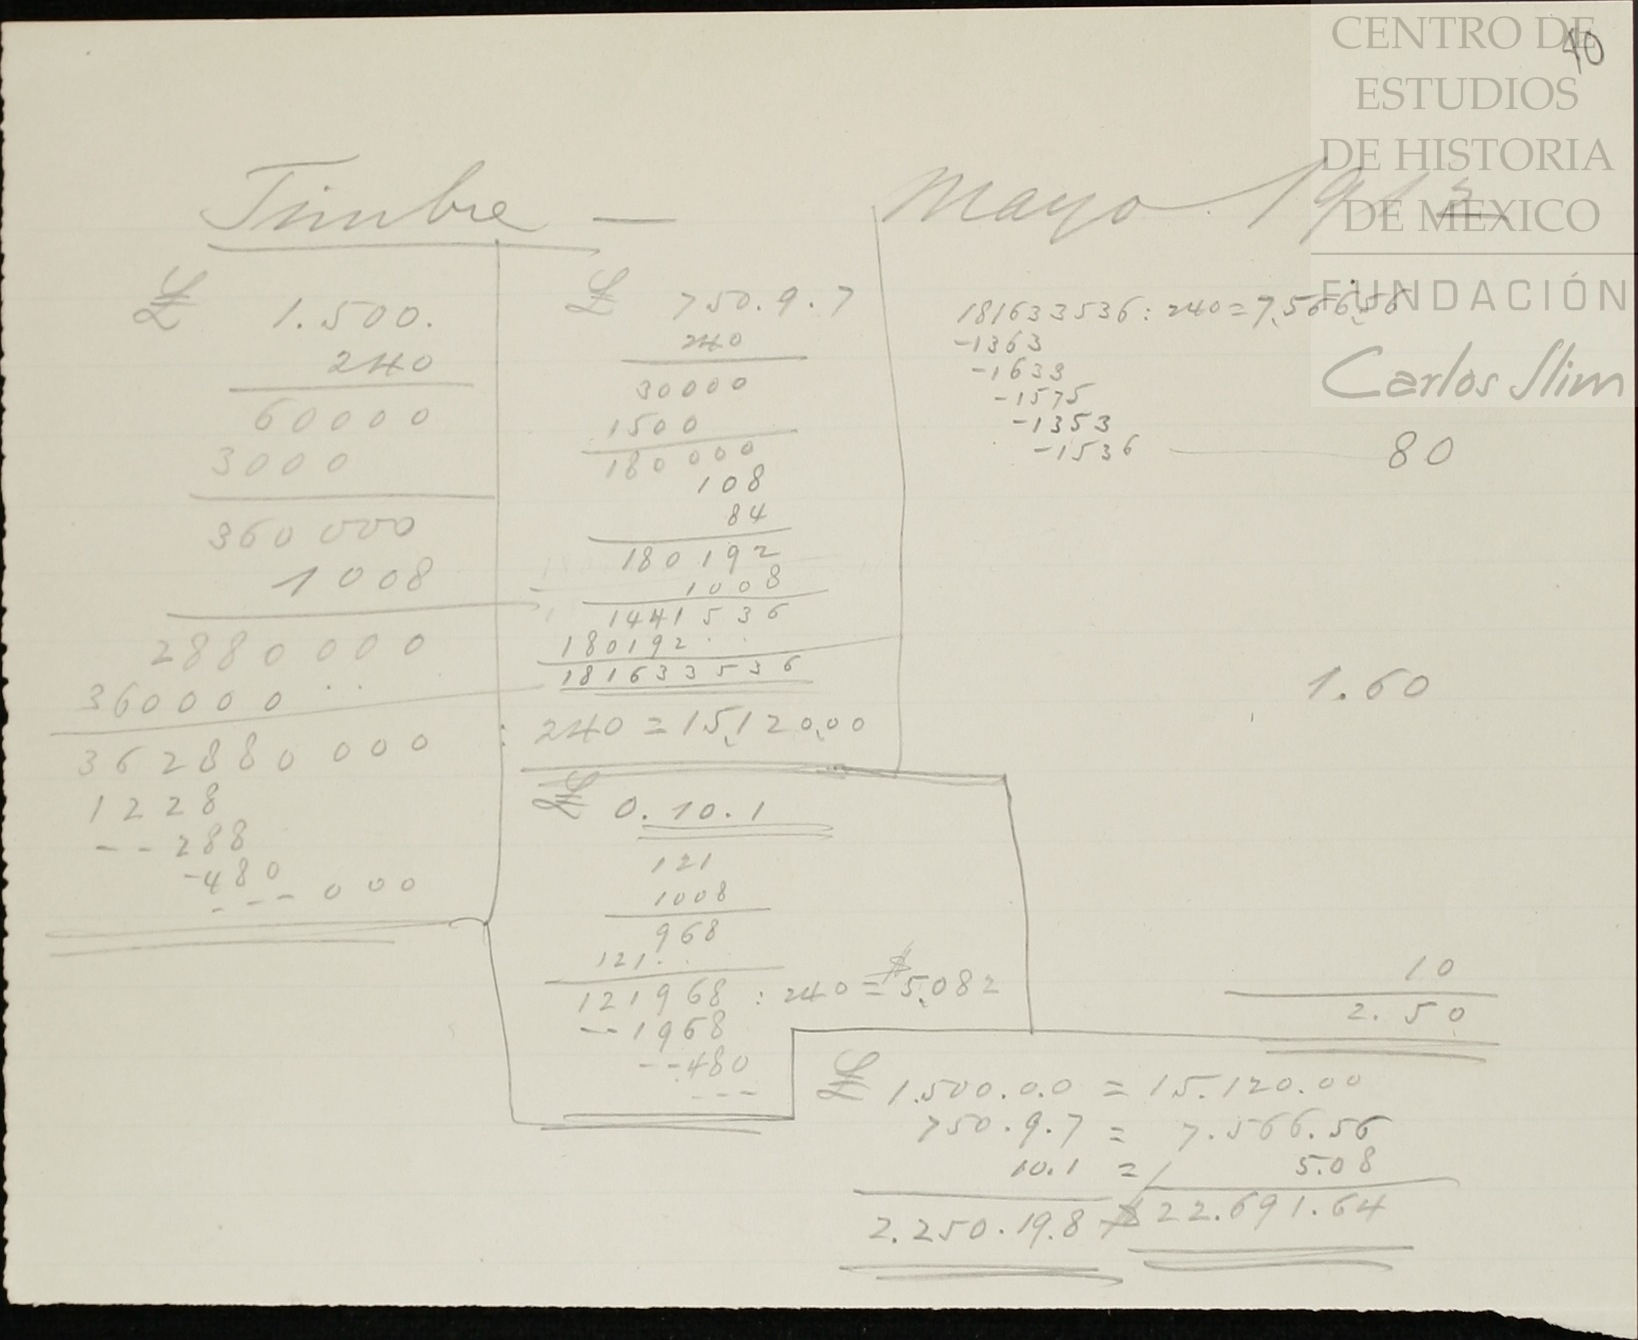 CENTRO DE
ESTUDIOS
DE HISTORIA
DE MEXICO
FUNDACIÓN
Carlos Slim
40
Timbre — Mayo
£ 1.500.
240
60000
3000
360000
1008
2880000
360000..
362880000 : 240 = 15,120,00
1228
--288
-480
---000
£ 750.9.7
240
30000
1500
180000
108
84
180192
1008
1441536
180192..
181633536
£ 0.10.1
121
1008
968
121..
121968 : 240 = $5,082
--1968
--480
---
181633536 : 240 = 7,566,56
-1363
-1633
-1575
-1353
-1536 — 80
1.60
10
2.50
£ 1.500.0.0 = 15.120.00
750.9.7 = 7.566.56
10.1 = 5.08
2.250.19.8 $ 22.691.64